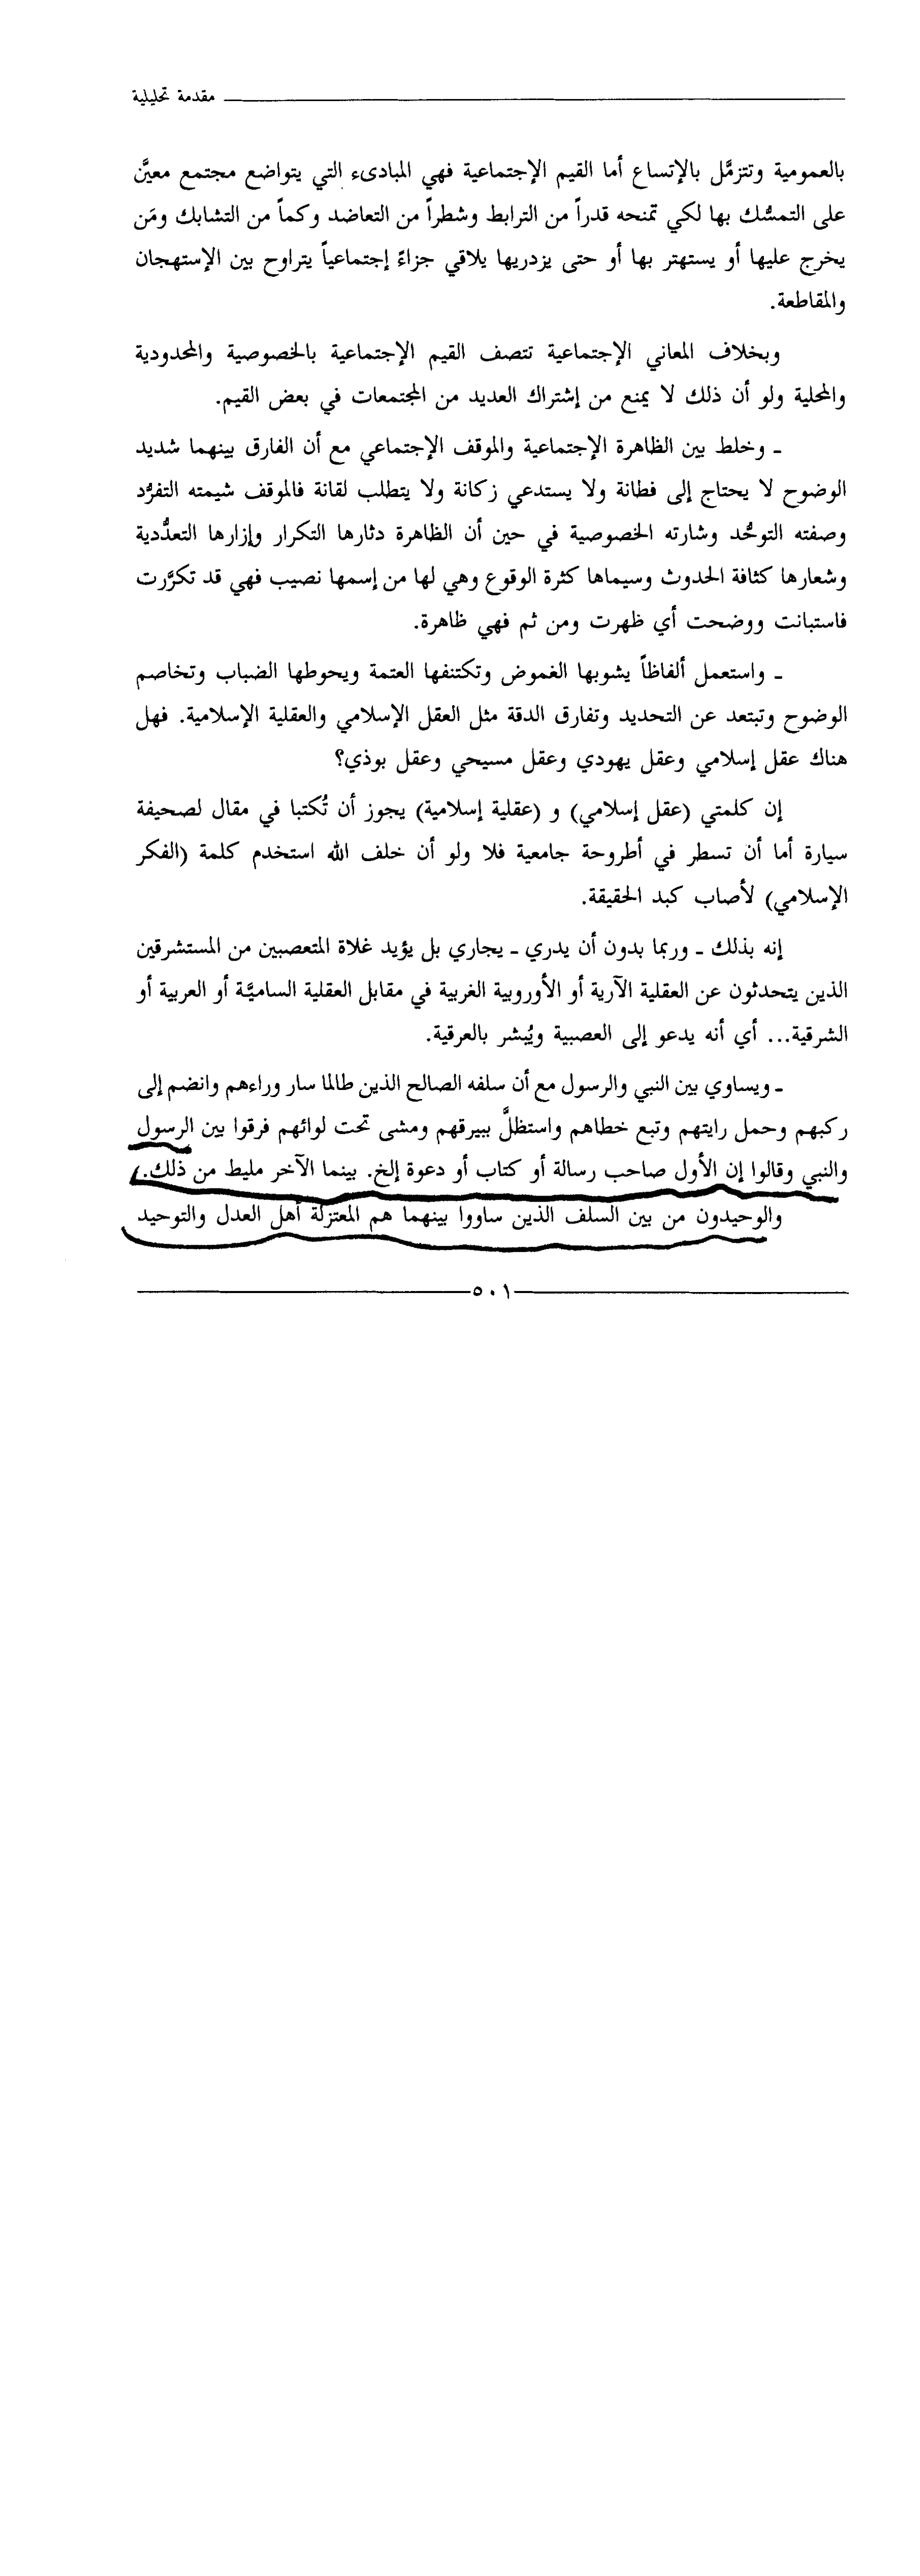 مقدمة تحليلية
بالعمومية وتتزمَّل بالإتساع أما القيم الإجتماعية فهي المبادىء التي يتواضع مجتمع معيَّن
على التمسُّك بها لكي تمنحه قدراً من الترابط وشطراً من التعاضد وكماً من التشابك ومَن
يخرج عليها أو يستهتر بها أو حتى يزدريها يلاقي جزاءً إجتماعياً يتراوح بين الإستهجان
والمقاطعة.
وبخلاف المعاني الإجتماعية تتصف القيم الإجتماعية بالخصوصية والمحدودية
والمحلية ولو أن ذلك لا يمنع من إشتراك العديد من المجتمعات في بعض القيم.
ـ وخلط بين الظاهرة الإجتماعية والموقف الإجتماعي مع أن الفارق بينهما شديد
الوضوح لا يحتاج إلى فطانة ولا يستدعي زكانة ولا يتطلب لقانة فالموقف شيمته التفرُّد
وصفته التوحُّد وشارته الخصوصية في حين أن الظاهرة دثارها التكرار وإزارها التعدُّدية
وشعارها كثافة الحدوث وسيماها كثرة الوقوع وهي لها من إسمها نصيب فهي قد تكرَّرت
فاستبانت ووضحت أي ظهرت ومن ثم فهي ظاهرة.
ـ واستعمل ألفاظاً يشوبها الغموض وتكتنفها العتمة ويحوطها الضباب وتخاصم
الوضوح وتبتعد عن التحديد وتفارق الدقة مثل العقل الإسلامي والعقلية الإسلامية. فهل
هناك عقل إسلامي وعقل يهودي وعقل مسيحي وعقل بوذي؟
إن كلمتي (عقل إسلامي) و (عقلية إسلامية) يجوز أن تُكتبا في مقال لصحيفة
سيارة أما أن تسطر في أطروحة جامعية فلا ولو أن خلف الله استخدم كلمة (الفكر
الإسلامي) لأصاب كبد الحقيقة.
إنه بذلك ـ وربما بدون أن يدري ـ يجاري بل يؤيد غلاة المتعصبين من المستشرقين
الذين يتحدثون عن العقلية الآرية أو الأوروبية الغربية في مقابل العقلية الساميَّة أو العربية أو
الشرقية... أي أنه يدعو إلى العصبية ويُبشر بالعرقية.
ـ ويساوي بين النبي والرسول مع أن سلفه الصالح الذين طالما سار وراءهم وانضم إلى
ركبهم وحمل رايتهم وتبع خطاهم واستظلَّ ببيرقهم ومشى تحت لوائهم فرقوا بين الرسول
والنبي وقالوا إن الأول صاحب رسالة أو كتاب أو دعوة إلخ. بينما الآخر مليط من ذلك.
والوحيدون من بين السلف الذين ساووا بينهما هم المعتزلة أهل العدل والتوحيد
٥٠١